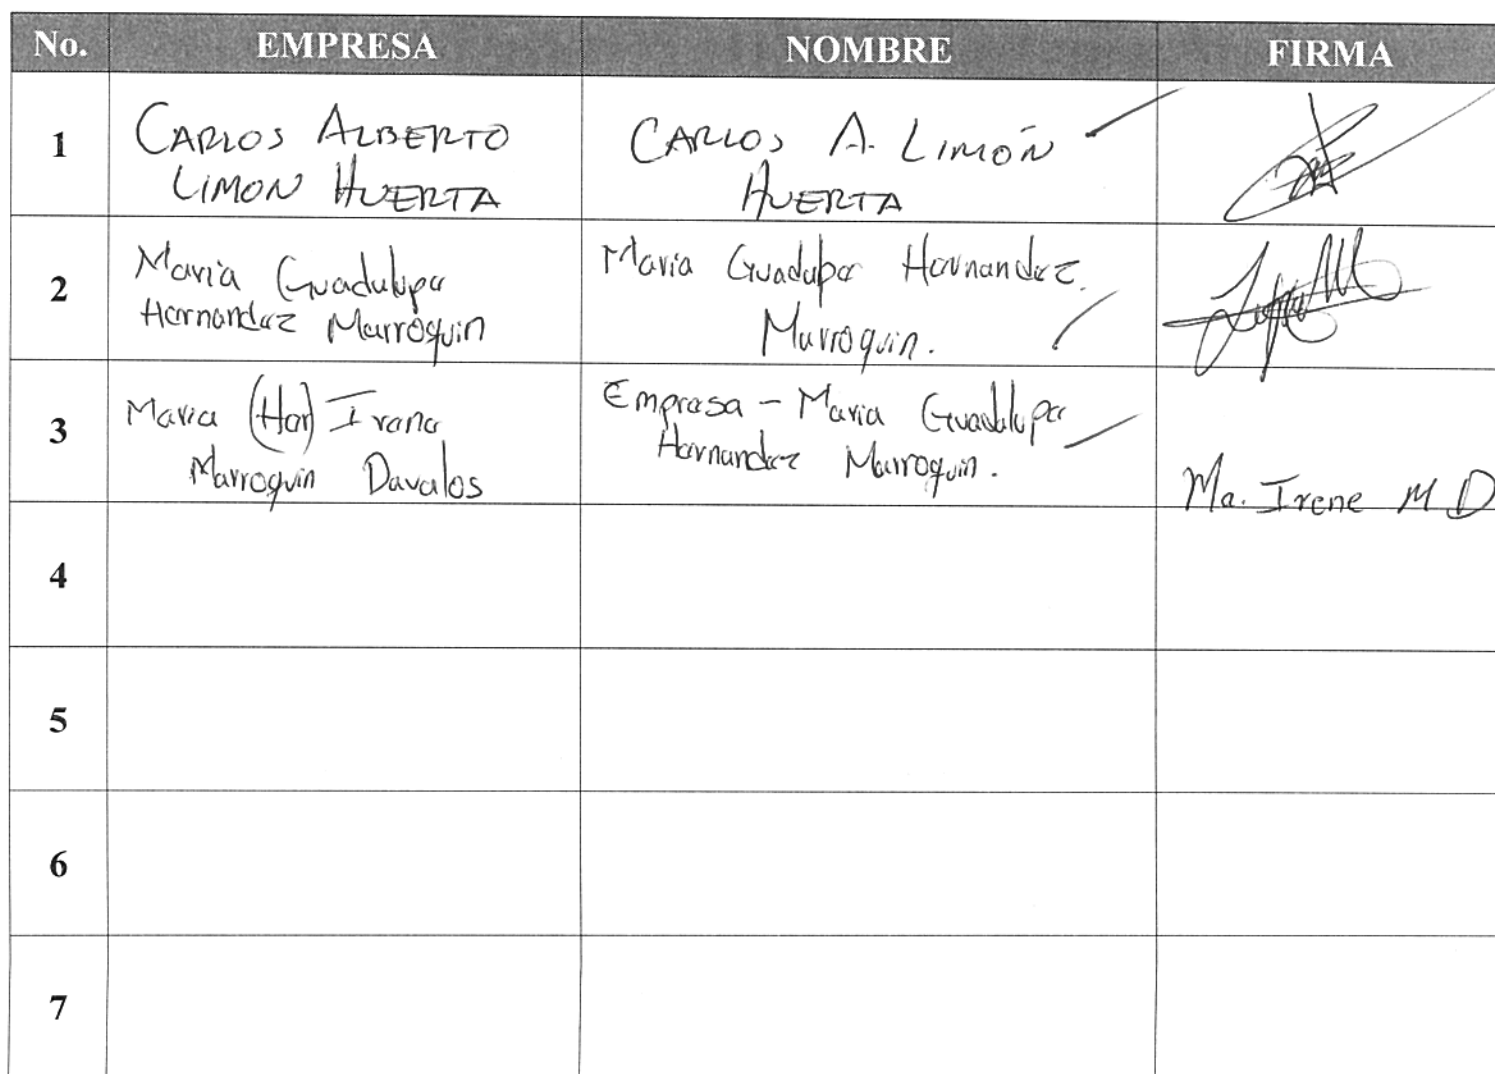 No. EMPRESA NOMBRE FIRMA
1
CARLOS ALBERTO
LIMON HUERTA
CARLOS A. LIMÓN
HUERTA
2
Maria Guadulupe
Hernandez Marroquin
Maria Guadupe Hernandez.
Marroquin.
3
Maria (Her) Irene
Marroquin Davalos
Empresa - Maria Guadalupe
Hernandez Marroquin.
Ma. Irene M D
4
5
6
7